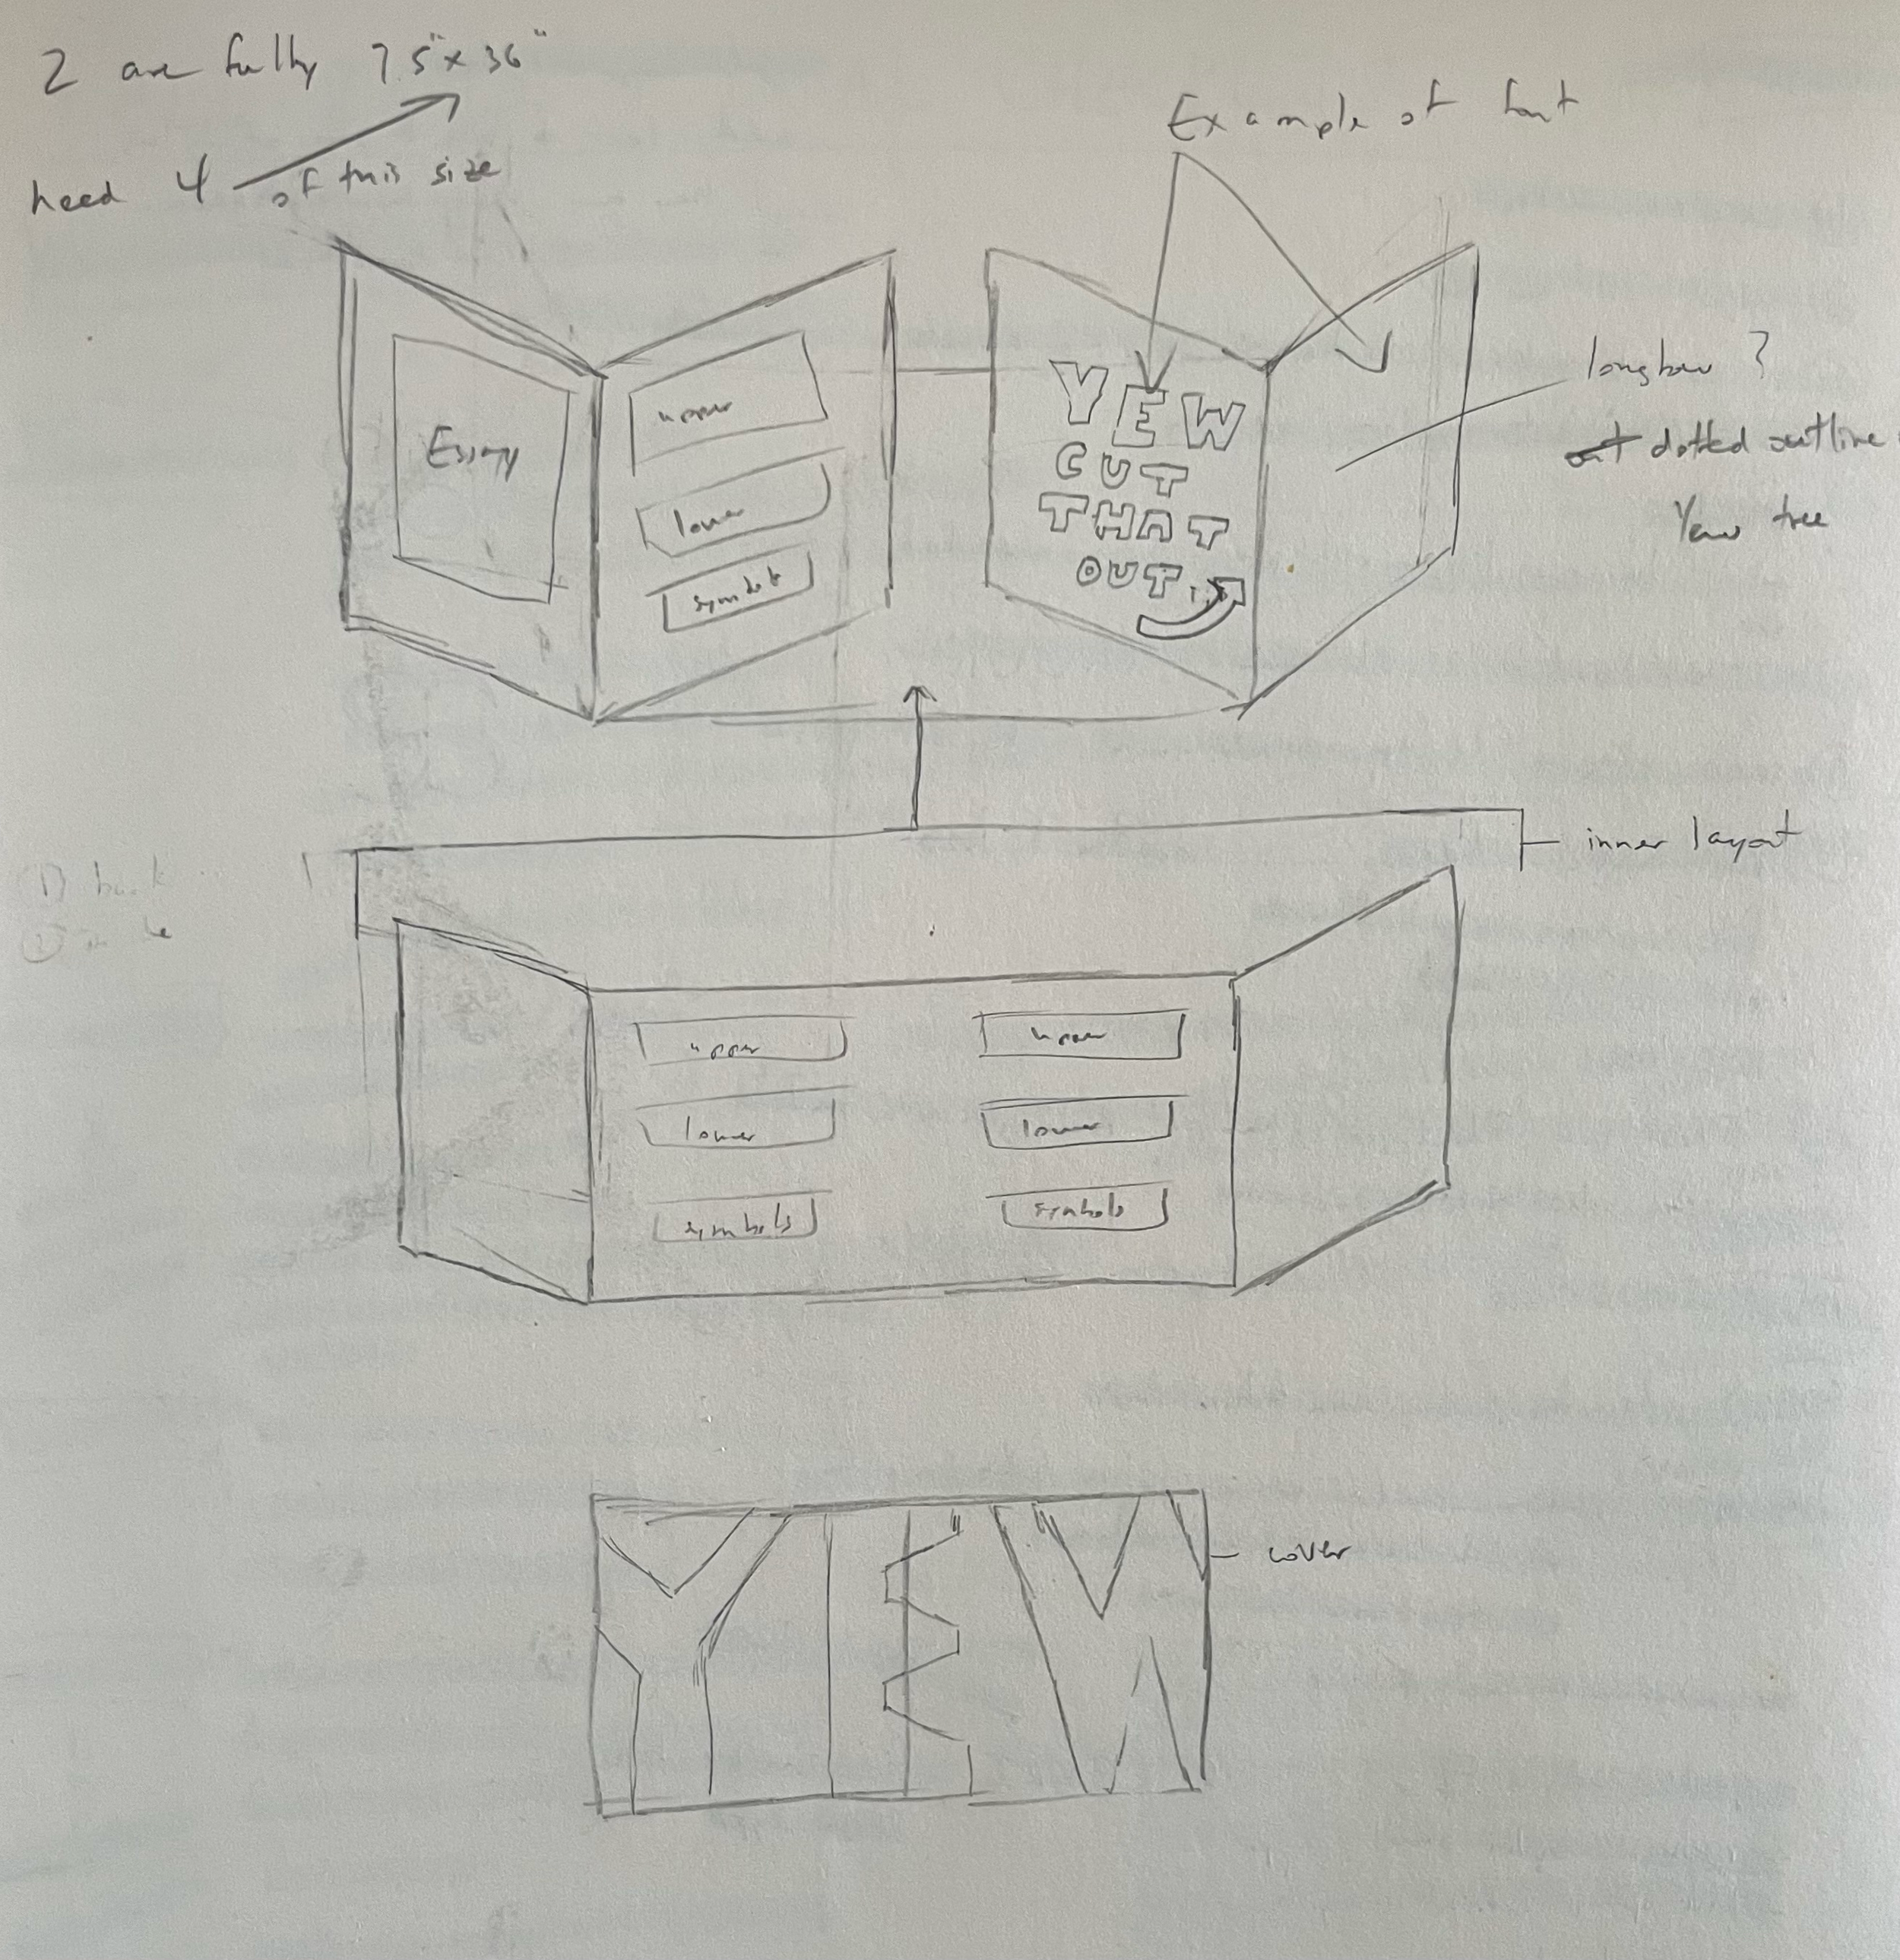 2 are fully 7.5" x 36"
need 4 of this size
Example of font
Essay
upper
lower
symbols
YEW
CUT
THAT
OUT...
longbow ?
dotted outline
Yew tree
inner layout
1) back
2)
upper
lower
symbols
upper
lower
symbols
YEW
cover